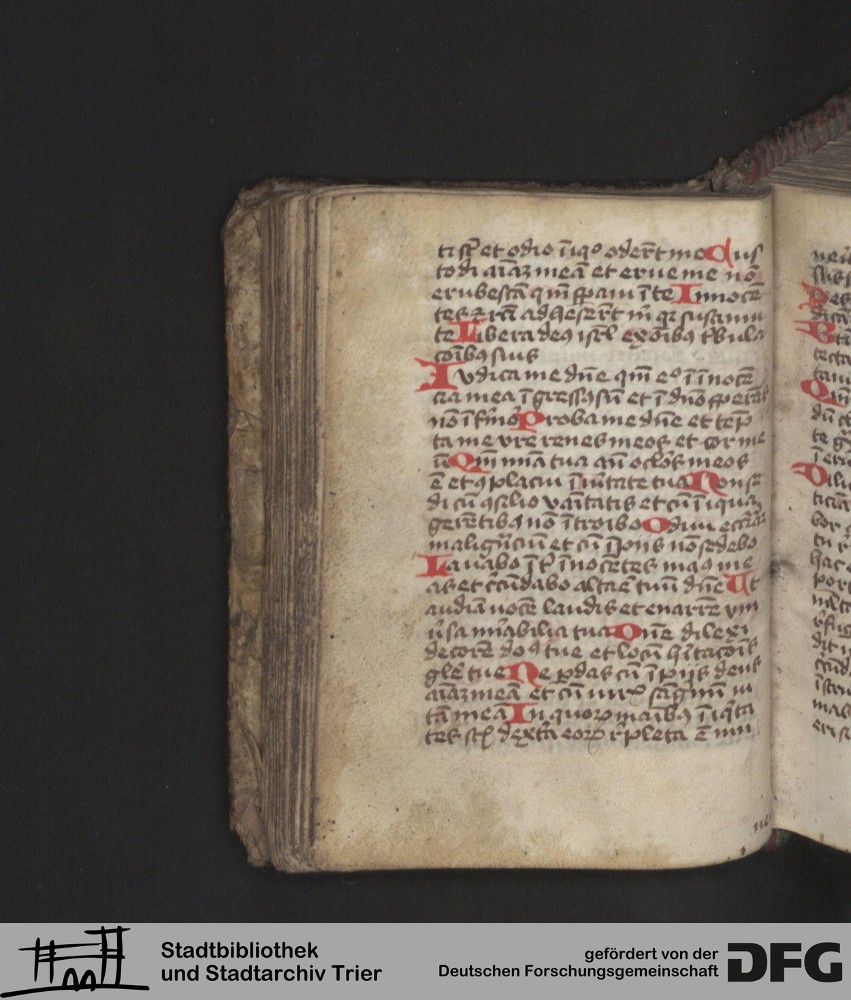 ti sūt et odio īiqo odert̄ me Cus
todi aīaz meā et erue me nō
erubescā qm̄ speraui ī te Innocē
tes et rc̄i adhesert̄ m̄ qr sustinui
te Libera deus isrl̄ ex oībus tribula
coībus suis
Iudica me dn̄e qm̄ eo ī īnocē
cia mea īgressus sū et ī dn̄o sperās
nō īfirmor Proba me dn̄e et temp
ta me vre renes meos et cor me
ū Qm̄ mīa tua an̄ oclos meos
ē et cplacui ī ūitate tua Non se
di cū csilio vanitatis et cū īiqua
gerētibus nō ītroibo Odiui ecclāz
maligncīu et cū īpiis nō sedebo
Lauabo īt īnocētes man9 me
as et circūdabo altare tuū dn̄e Ut
audiā uocē laudis et enarrē vni
ūsa mirabilia tua Dn̄e dilexi
decorē dom9 tue et locū hītacōis
glē tue Ne perdas cū īpiis deus
aīaz meā et cū uirꝝ sāgnū ui
tā meā In quorꝝ maībus īiqita
tes st̄ dextra eorꝝ rīpleta ē mu
Stadtbibliothek
und Stadtarchiv Trier
gefördert von der
Deutschen Forschungsgemeinschaft
DFG